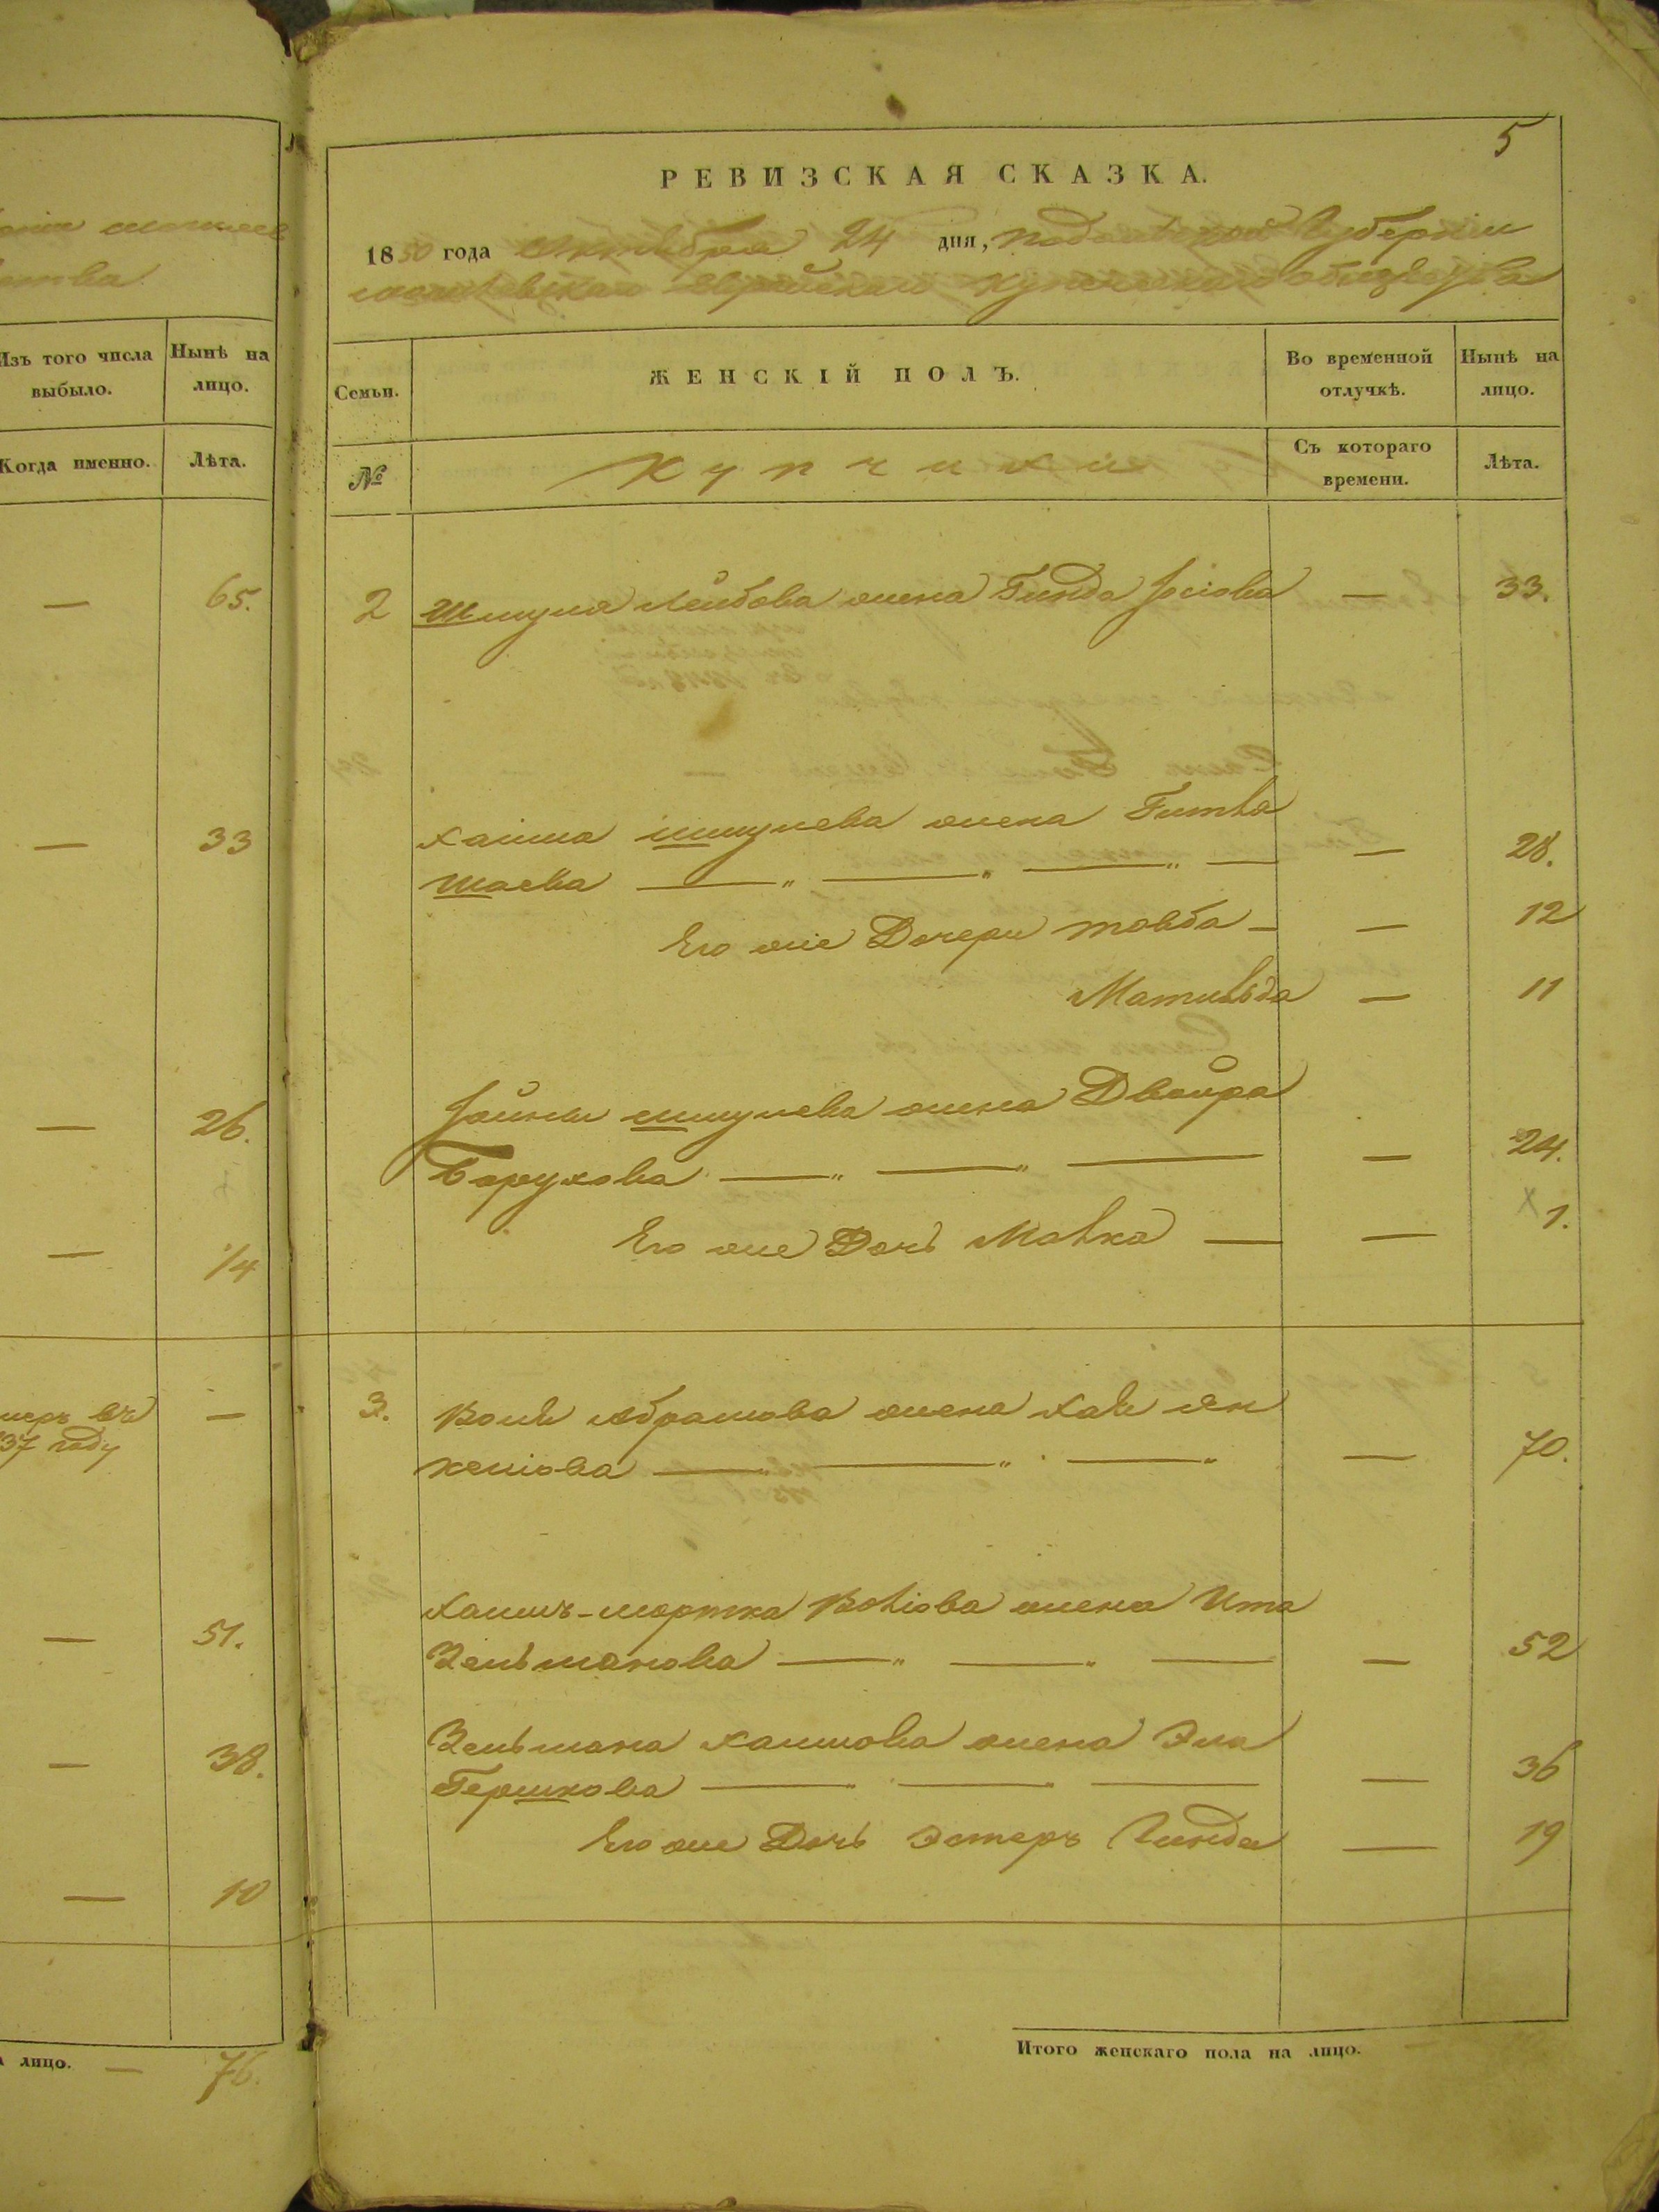 Изъ того числа выбыло.
Нынѣ на лицо.
Когда именно.
Лѣта.
— 65.
— 33
— 26.
— 1/4
меръ въ —
37 году
— 51.
— 38.
— 10
лицо. — 76.
5
РЕВИЗСКАЯ СКАЗКА.
1850 года Октября 24 дня, Подольской Губерніи
Могилевскаго Еврейскаго Купеческаго общества
Семьи.
ЖЕНСКІЙ ПОЛЪ.
Во временной отлучкѣ.
Нынѣ на лицо.
№
Купчихи
Съ котораго времени.
Лѣта.
2 Шмуля Лейбова жена Гинда Јосіова — 33.
Хаима Шмулева жена Гитля
Шаева — „ — „ — „ — — 28.
Его же Дочери Товба — — 12
Матильда — 11
Јойны Шмулева жена Двойра
Борухова — „ — „ — — 24.
Его же Дочь Малка — — х 1.
3. Вольи Абрамова жена Хая Ян
келіова — „ — „ — „ — 70.
Хаимъ-мортка Воліова жена Ита
Зельманова — „ — „ — — 52
Зельмана Хаимова жена Эла
Гершкова — „ — „ — — 36
Его же Дочь Эстеръ Гинда — 19
Итого женскаго пола на лицо.